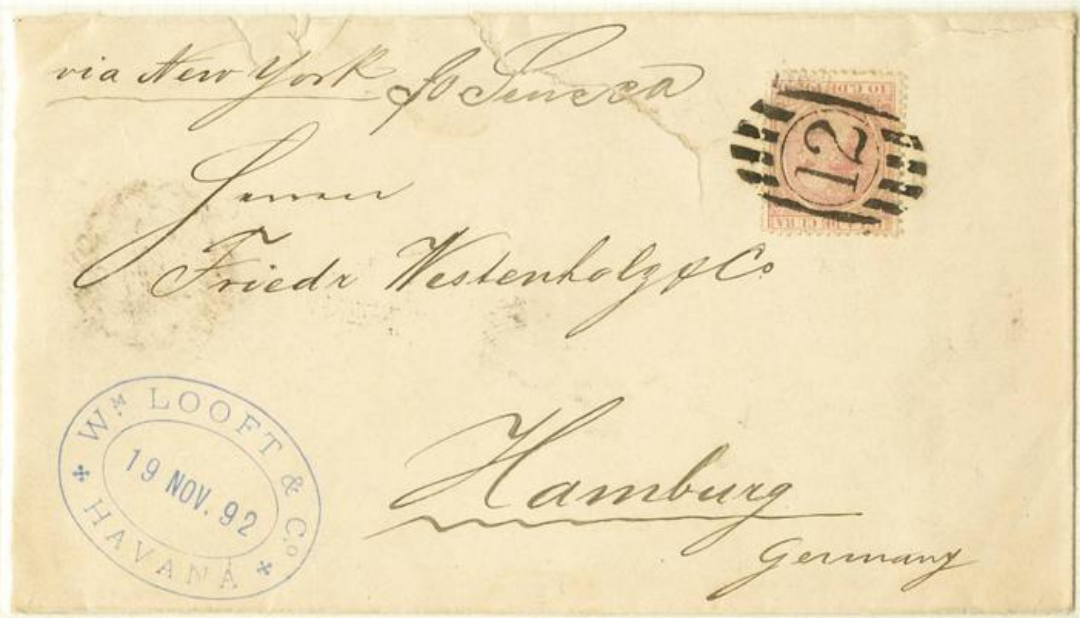 via New York p Seneca
Herren
Friedr Westenholz & Co
Hamburg
Germany
Wᴹ LOOFT & Cº
19 NOV. 92
HAVANA
12